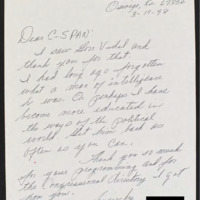 Oswego, Ks. 67356
3-11-98
Dear C-SPAN:
I saw Gore Vidal and
thank you for that.
I had long ago forgotten
what a man of intelligence
he was. Or perhaps I have
become more educated in
the ways of the political
world. Get him back as
often as you can.
Thank you so much
for your programming and for
the Congressional directory I got
from you.